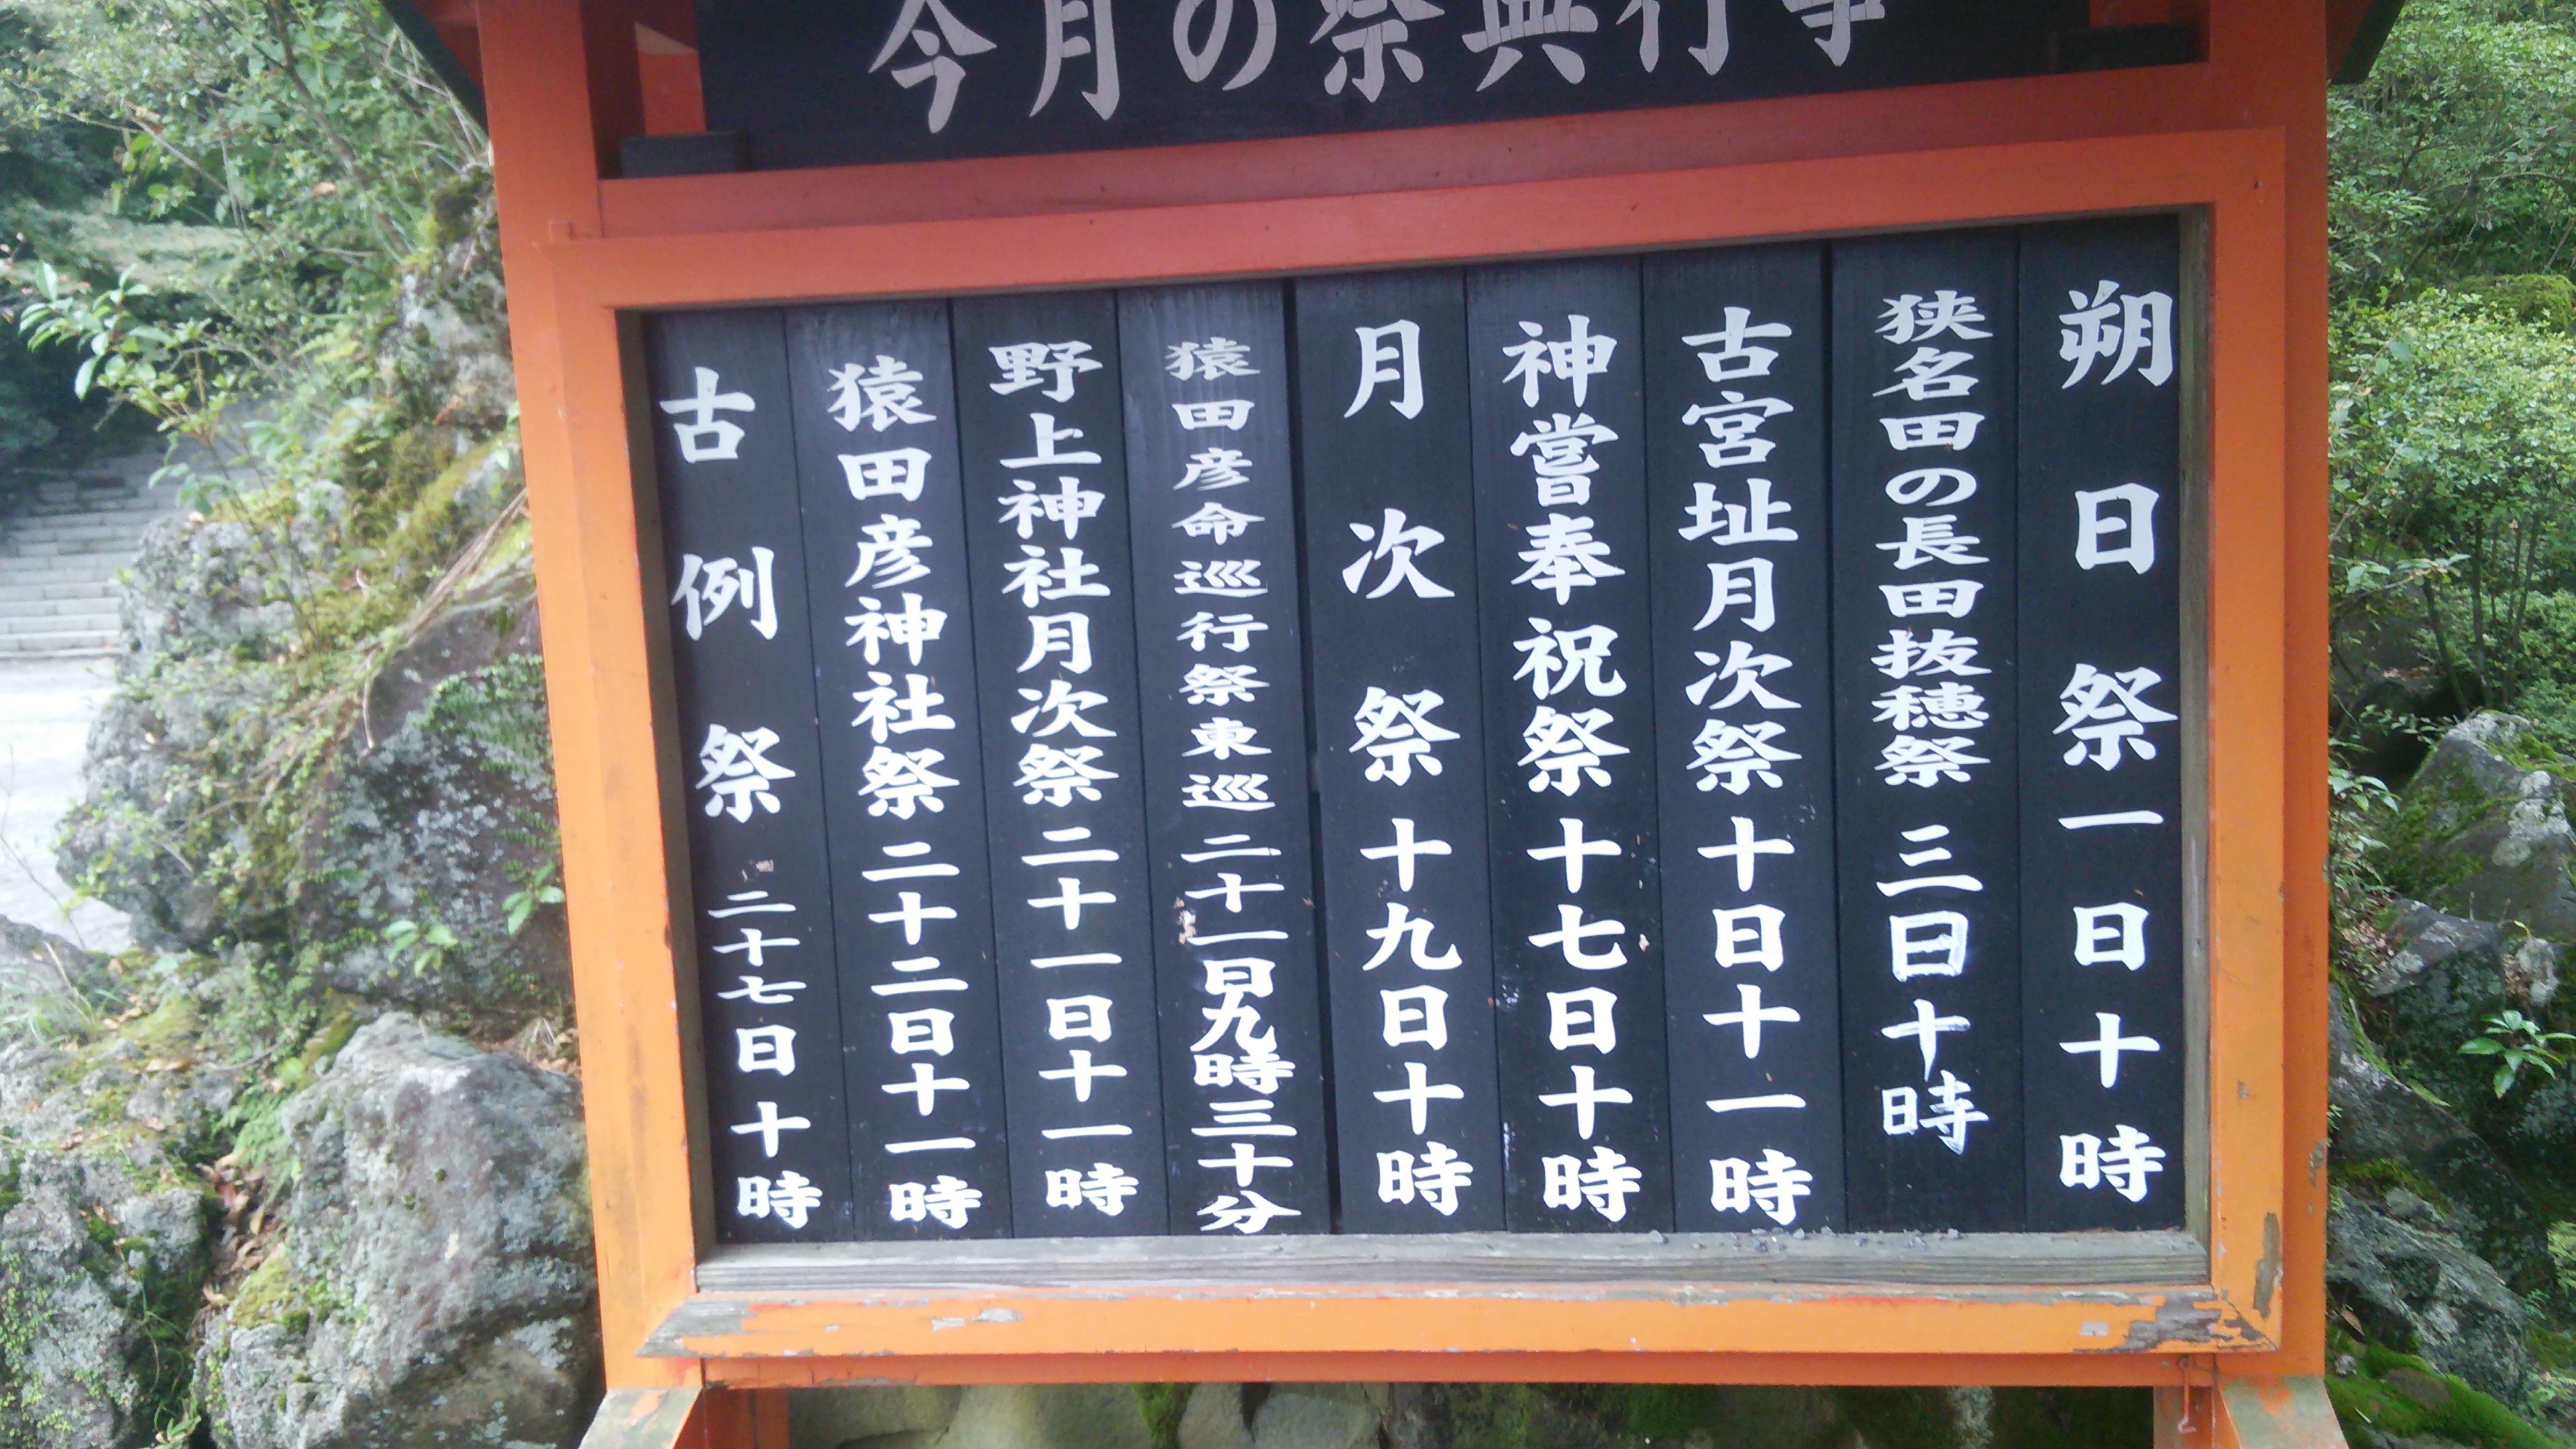 今月の祭典行事
朔日祭一日十時
狭名田の長田抜穂祭三日十時
古宮址月次祭十日十一時
神嘗奉祝祭十七日十時
月次祭十九日十時
猿田彦命巡行祭東巡二十一日九時三十分
野上神社月次祭二十一日十一時
猿田彦神社祭二十二日十一時
古例祭二十七日十時